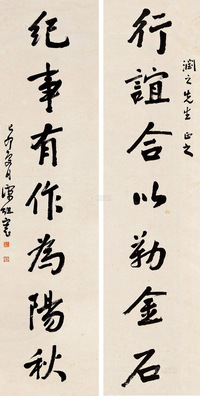 行誼合以勒金石
潤之先生正之
紀事有作為陽秋
譚延闓